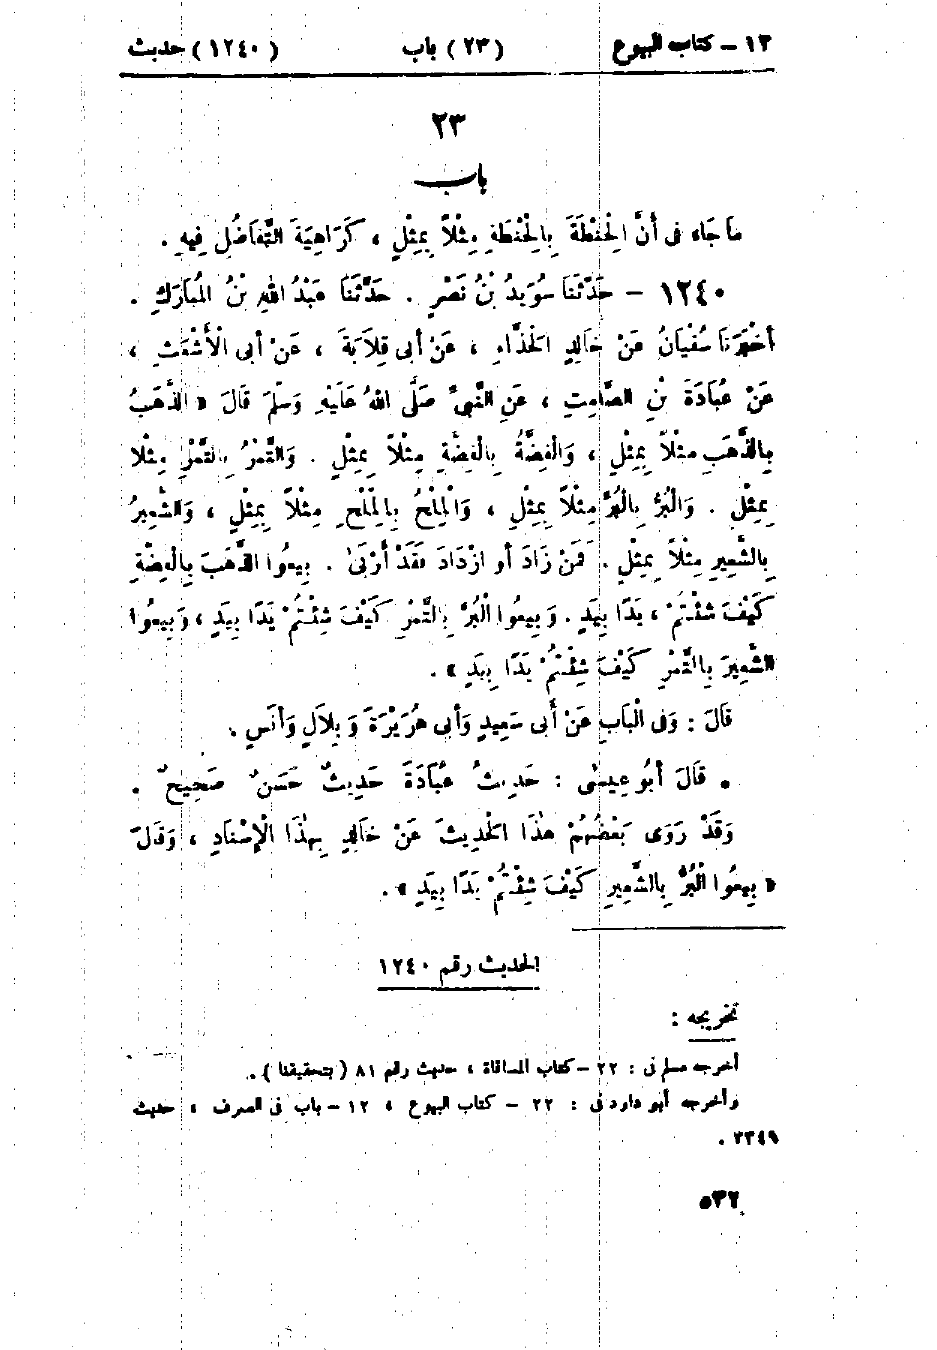 ١٣ – كتاب البيوع (٢٣) باب (١٢٤٠) حديث
٢٣
باب
مَا جَاءَ فى أَنَّ الْحِنْطَةَ بِالْحِنْطَةِ مِثْلاً بِمِثْلٍ ، كَرَاهِيَةَ التَّفَاضُلِ فِيهِ .
١٢٤٠ – حَدَّثَنَا سُوَيدُ بْنُ نَصْرٍ . حَدَّثَنَا عَبْدُ اللهِ بْنُ الْمُبَارَكِ .
أَخْبَرَنَا سُفْيَانُ عَنْ خَالِدٍ الْحَذَّاءِ ، عَنْ أَبى قِلاَبَةَ ، عَنْ أَبى الْأَشْعَثِ ،
عَنْ عُبَادَةَ بْنِ الصَّامِتِ ، عَنِ النَّبِىِّ صَلَّى اللهُ عَلَيْهِ وَسَلَّمَ قَالَ « الذَّهَبُ
بِالذَّهَبِ مِثْلاً بِمِثْلٍ ، وَالْفِضَّةُ بِالْفِضَّةِ مِثْلاً بِمِثْلٍ . وَالتَّمْرُ بِالتَّمْرِ مِثْلاً
بِمِثْلٍ . وَالْبُرُّ بِالْبُرِّ مِثْلاً بِمِثْلٍ ، وَالْمِلْحُ بِالْمِلْحِ مِثْلاً بِمِثْلٍ ، وَالشَّعِيرُ
بِالشَّعِيرِ مِثْلاً بِمِثْلٍ . فَمَنْ زَادَ أَو ازْدَادَ فَقَدْ أَرْبَىٰ . بِيعُوا الذَّهَبَ بِالْفِضَّةِ
كَيْفَ شِئْتُمْ ، يَدًا بِيَدٍ . وَبِيعُوا الْبُرَّ بِالتَّمْرِ كَيْفَ شِئْتُمْ يَدًا بِيَدٍ ، وَبِيعُوا
الشَّعِيرَ بِالتَّمْرِ كَيْفَ شِئْتُمْ يَدًا بِيَدٍ » .
قَالَ : وَفى الْبَابِ عَنْ أَبى سَعِيدٍ وَأَبى هُرَيْرَةَ وَبِلاَلٍ وَأَنَسٍ .
• قَالَ أَبُو عِيسٰى : حَدِيثُ عُبَادَةَ حَدِيثٌ حَسَنٌ صَحِيحٌ .
وَقَدْ رَوَى بَعْضُهُمْ هٰذَا الْحَدِيثَ عَنْ خَالِدٍ بِهٰذَا الْإِسْنَادِ ، وَقَالَ
« بِيعُوا الْبُرَّ بِالشَّعِيرِ كَيْفَ شِئْتُمْ يَدًا بِيَدٍ » .
الحديث رقم ١٢٤٠
تخريجه :
أخرجه مسلم فى : ٢٢ – كتاب المساقاة ، حديث رقم ٨١ ( بتحقيقنا ) .
وأخرجه أبو داود فى : ٢٢ – كتاب البيوع ، ١٢ – باب فى الصرف ، حديث
٣٣٤٩ .
٥٣٢